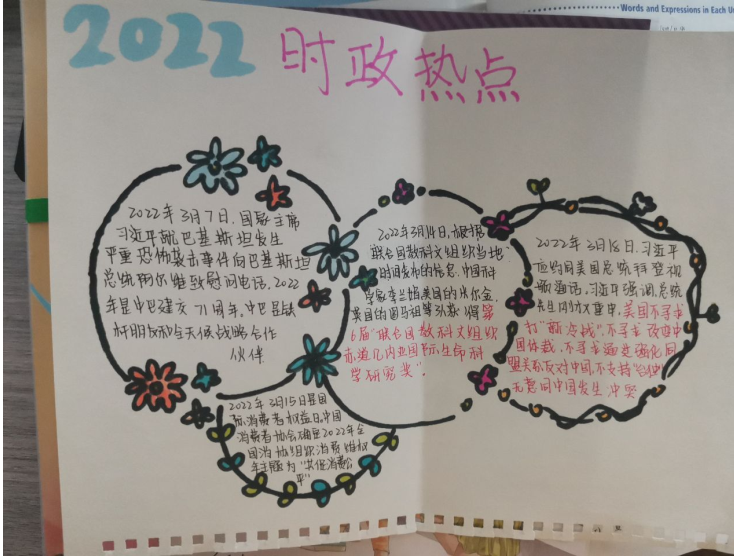 Words and Expressions in Each
2022 时政热点
2022年3月7日,国家主席
习近平就巴基斯坦发生
严重恐怖袭击事件向巴基斯坦
总统阿尔维致慰问电话,2022
年是中巴建交71周年,中巴是
好朋友和全天候战略合作
伙伴
2022年3月15日是国
际消费者权益日,中国
消费者协会确定2022年全
国消协组织消费维权
年主题为"共促消费公
平"
2022年3月14日,根据
联合国教科文组织当地
时间发布的信息,中国科
学家李兰娟,美国的米尔金,
英国的图马祖等分获得第
6届"联合国教科文组织
赤道几内亚国际生命科
学研究奖".
2022年3月18日,习近平
应约同美国总统拜登视
频通话,习近平强调,总统
先生刚才重申,美国不寻求
打"新冷战",不寻求改变中
国体裁,不寻求通过强化同
盟关系反对中国,不支持"台独"
无意同中国发生冲突